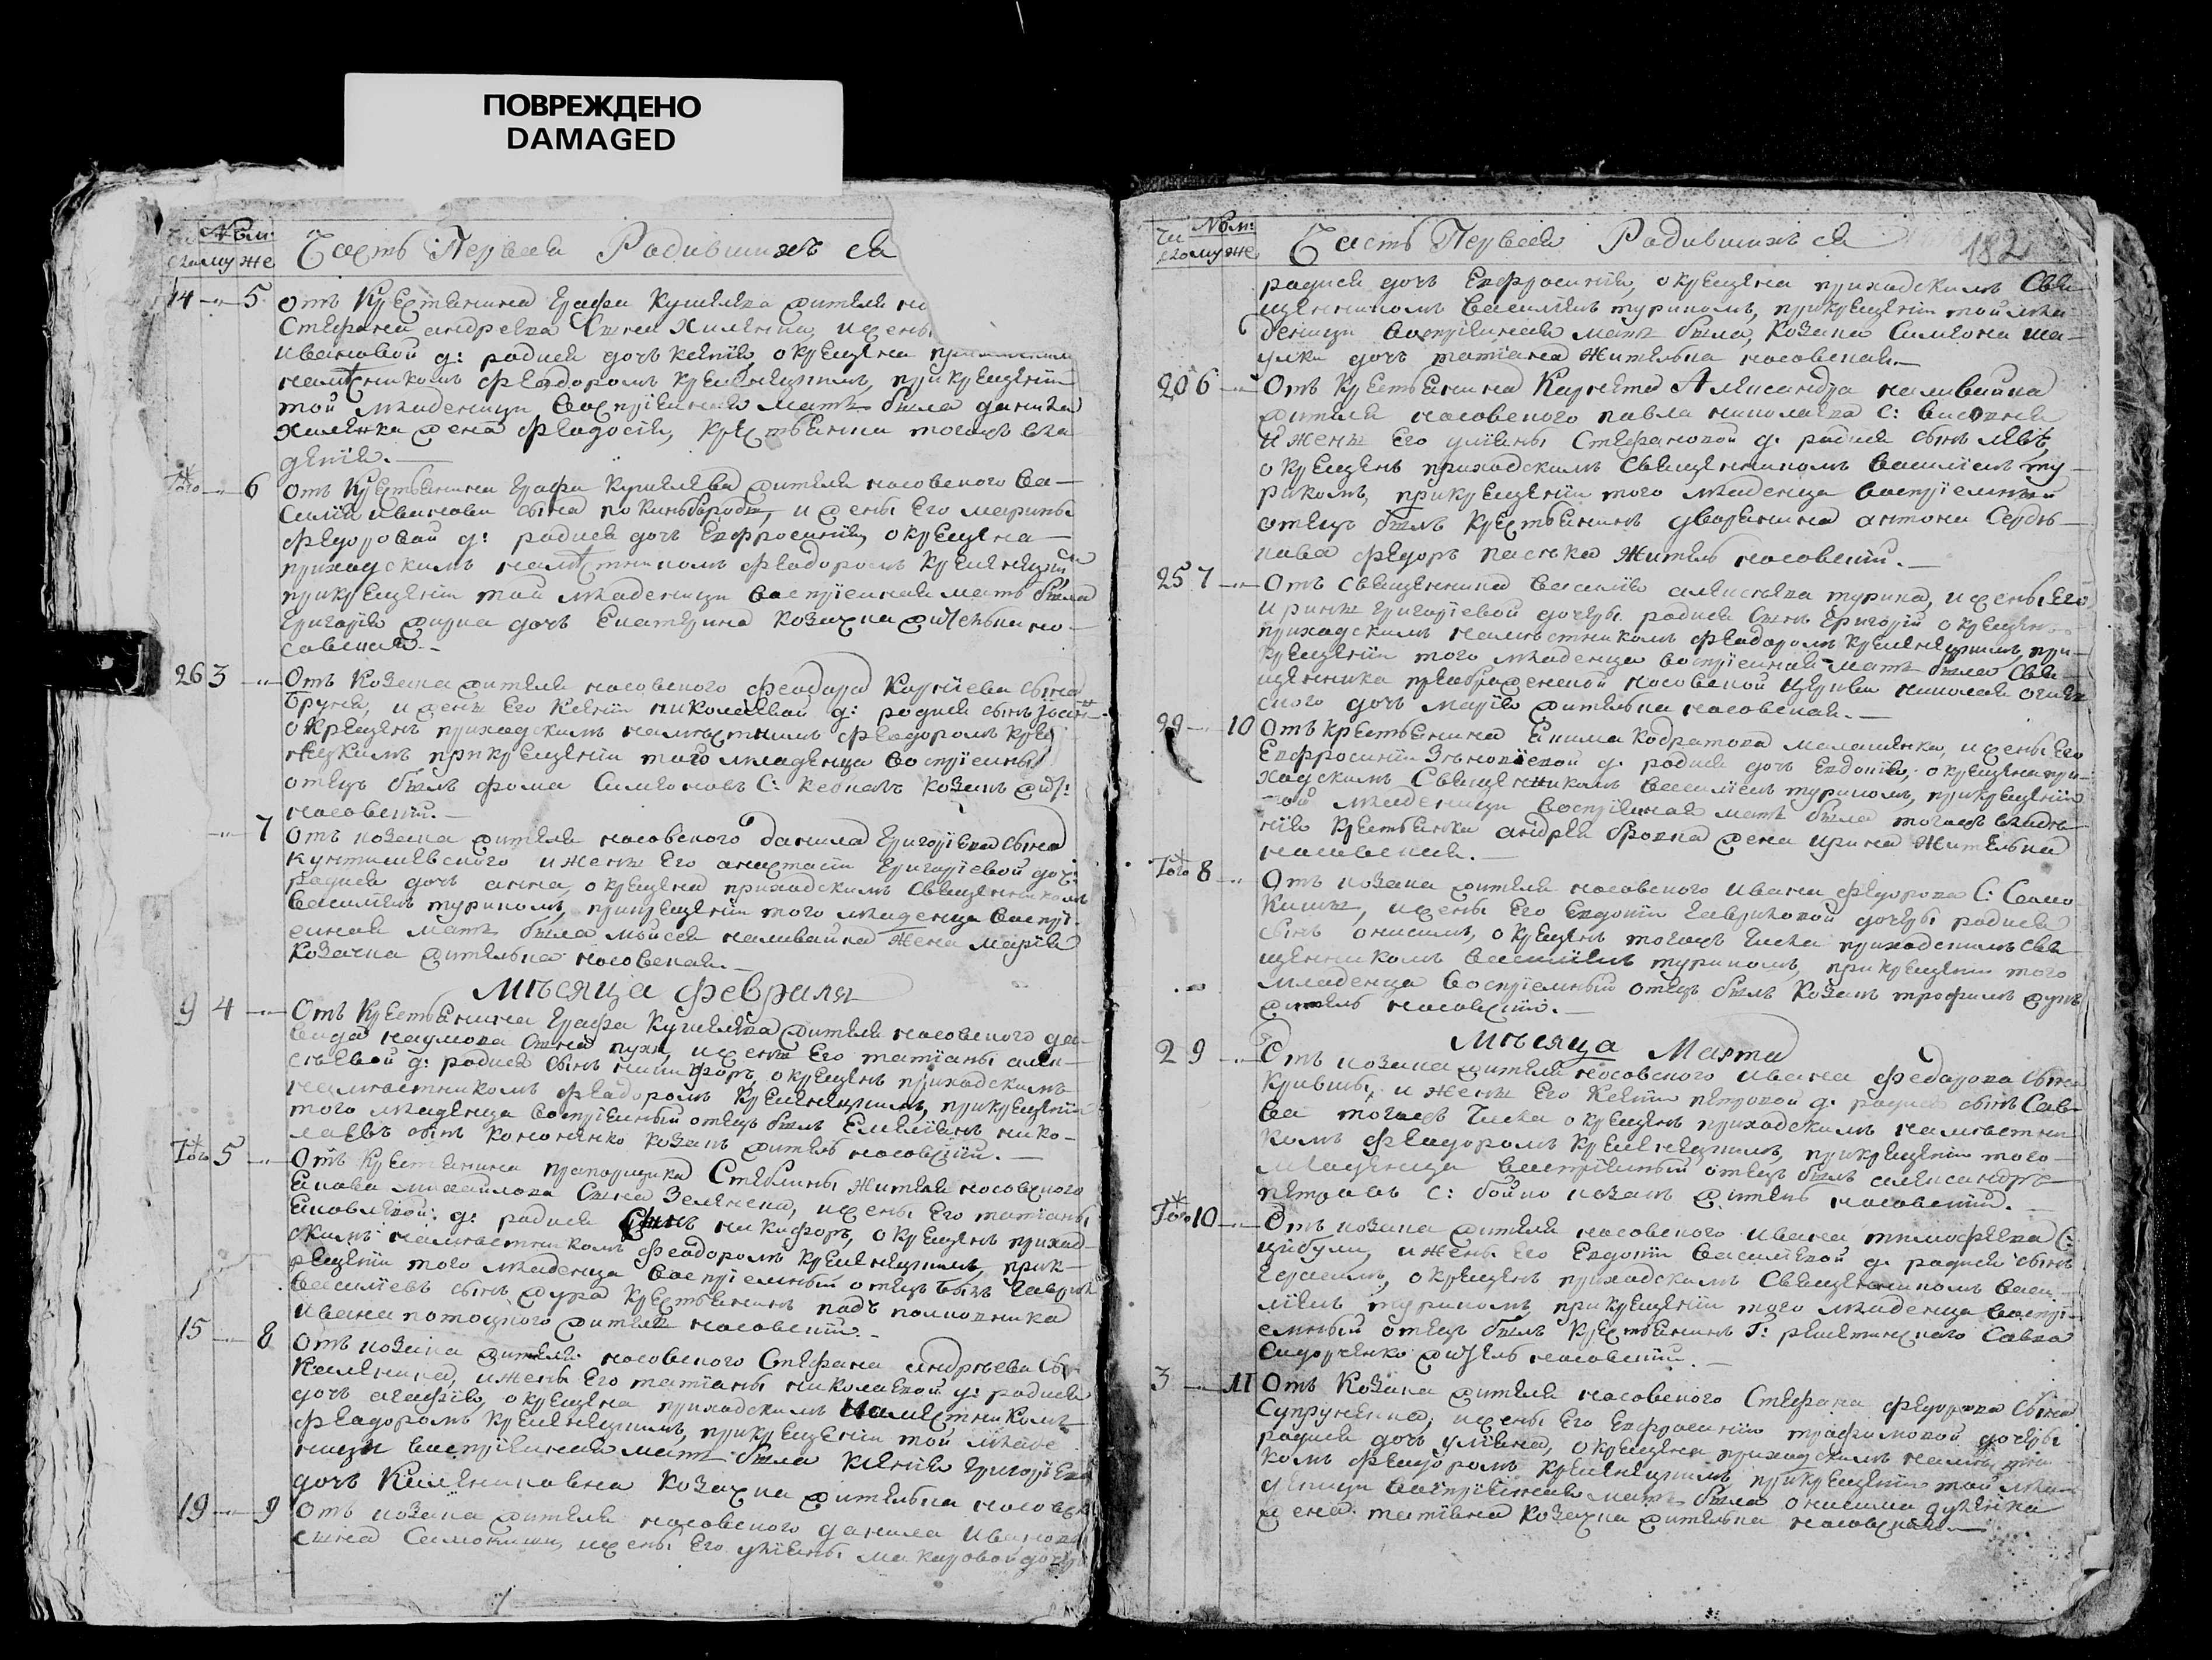 ПОВРЕЖДЕНО
DAMAGED
Nом:
скому же
Часть Первая Родившихъ ся
14 5 отъ Крестьянина Графа Кушелева жителя но
Стефана андреева Сына Хиленка, и жены
ивановой д: родися дочь ксенія, окрещена
наместникомъ феодоромъ кременецкимъ, прикрещеніи
той младеницы воспріемная мать была данила
Хиленка жена феодосія, крестьянка тогожъ вла
денія.
Того 6 отъ крестьянина Графа Кушелева жителя носовского Ва-
силія иванова сына покиньбороды, и жены Его марины
федоровой д: родися дочь Евфросинія, окрещена
приходскимъ наместникомъ феодоромъ кременецкимъ
прикрещеніи той младеницы воспріемная мать была
Григорія дочь Екатерина козачка жителька но-
совская.
26 3 Отъ Козака жителя носовского феодора Карпіева сына
и жены Его Ксеніи николаевой д: родися сынъ
окрещенъ приходскимъ наместникомъ феодоромъ креме
нецкимъ прикрещеніи того младенца воспріемный
отецъ былъ фома Симеоновъ С: козакъ жи:
носовскій.
7 Отъ козака жителя носовского данила Григоріева сына
кунтишевского и жены Его анастасіи Григоріевой доч:
родися дочь анна, окрещена приходскимъ священникомъ
василіемъ турикомъ, прикрещеніи того младенца воспрі-
емная мать была мойсея наливайка жена марія
козачка жителька носовская.
Мѣсяца февраля
9 4 Отъ Крестьянина Графа Кушелева жителя носовского да-
вида наумова Сына пухи, и жены Его татіаны алек-
сѣевой д: родися сынъ никифоръ, окрещенъ приходскимъ
наместникомъ феодоромъ кременецкимъ, прикрещеніи
того младенца воспріемный отецъ былъ Емеліянъ нико-
лаевъ сынъ кононенко козакъ житель носовскій.
Того 5 Отъ Крестьянина прапорщика Стеблины жителя носовского
Якова михайлова Сына Зеленска, и жены Его татіаны
Яковлевой: д: родися Сынъ никифоръ, окрещенъ приход-
скимъ наместникомъ феодоромъ кременецкимъ, прик-
рещеніи того младенца воспріемный отецъ былъ Гаврило
василіевъ сынъ крестьянинъ подъ полковника
ивана потоцкого житель носовскій.
15 8 Отъ козака жителя носовского Стефана андрѣева Сы
Каленика, и жены Его татіаны николаевой д: родися
дочь агафія, окрещена приходскимъ наместникомъ
феодоромъ кременецкимъ, прикрещеніи той младе
ницы воспріемная мать была Ксенія Григоріева
дочь Калениковна козачка жителька носовска
19 9 Отъ козака жителя носовского данила иванова
сына Самокиши, и жены Его уліаны макаровой дочери
Nом:
скому же
Часть Первая Родившихъ ся
182
родися дочь Евфросинія, окрещена приходскимъ Свя
щенникомъ василіемъ турикомъ, прикрещеніи той мла-
деницы воспріемная мать была, козака Симеона
дочь татіана жителька носовская.
20 6 Отъ Крестьянина Корнета Александра наливайка
жителя носовского павла николаева С:
и жены Его уліяны Стефановой д. родися сынъ левъ,
окрещенъ приходскимъ Священникомъ василіемъ ту-
рикомъ, прикрещеніи того младенца воспріемный
отецъ былъ крестьянинъ дворянина антона Сердю-
кова федоръ паська житель носовскій.
25 7 Отъ Священника василія алексѣева турика, и жены Его
ирины Григоріевой дочери родися Сынъ Григорій окрещенъ
приходскимъ наместникомъ феодоромъ кременецкимъ, при-
крещеніи того младенца воспріемная мать была Свя-
щенника преображенской носовской церкви николая
дочь марія жителька носовская.
10 Отъ крестьянина Якима Кодратова малашенка, и жены Его
Евфросиніи Зѣновіевой д. родися дочь Евдокія, окрещена при-
ходскимъ Священникомъ василіемъ турикомъ, прикрещеніи
той младеницы воспріемная мать была тогожъ владе-
нія крестьянка андрея бровка жена ирина жителька
носовская.
Того 8 Отъ козака жителя носовского ивана федорова С: Само
киши, и жены Его Евдокіи Гавриловой дочери родися
сынъ онисимъ, окрещенъ тогожъ числа приходскимъ свя-
щенникомъ василіемъ турикомъ, прикрещеніи того
младенца воспріемный отецъ былъ козакъ трофимъ
житель носовскій.
Мѣсяца Марта
2 9 Отъ козака жителя носовского ивана федорова сына
Кривши, и жены Его Ксеніи петровой д. родися сынъ Сав-
ва тогожъ числа окрещенъ приходскимъ наместни
комъ феодоромъ кременецкимъ, прикрещеніи того
младенца воспріемный отецъ былъ александръ
петровъ С: бойко козакъ житель носовскій.
Того 10 Отъ козака жителя носовского ивана тимофеева С:
цибули, и жены Его Евдокіи василіевой д. родися сынъ
Герасимъ, окрещенъ приходскимъ Священникомъ васи-
ліемъ турикомъ, прикрещеніи того младенца воспрі-
емный отецъ былъ крестьянинъ Г: решетинского Савва
Сидорченко житель носовскій.
3 11 Отъ Козака жителя носовского Стефана федорова сына
Супруненка, и жены Его Евфросиніи трофимовой дочери
родися дочь уліяна, окрещена приходскимъ наместни
комъ феодоромъ кременецкимъ, прикрещеніи той мла
деницы воспріемная мать была онисима
жена татіана козачка жителька носовская.